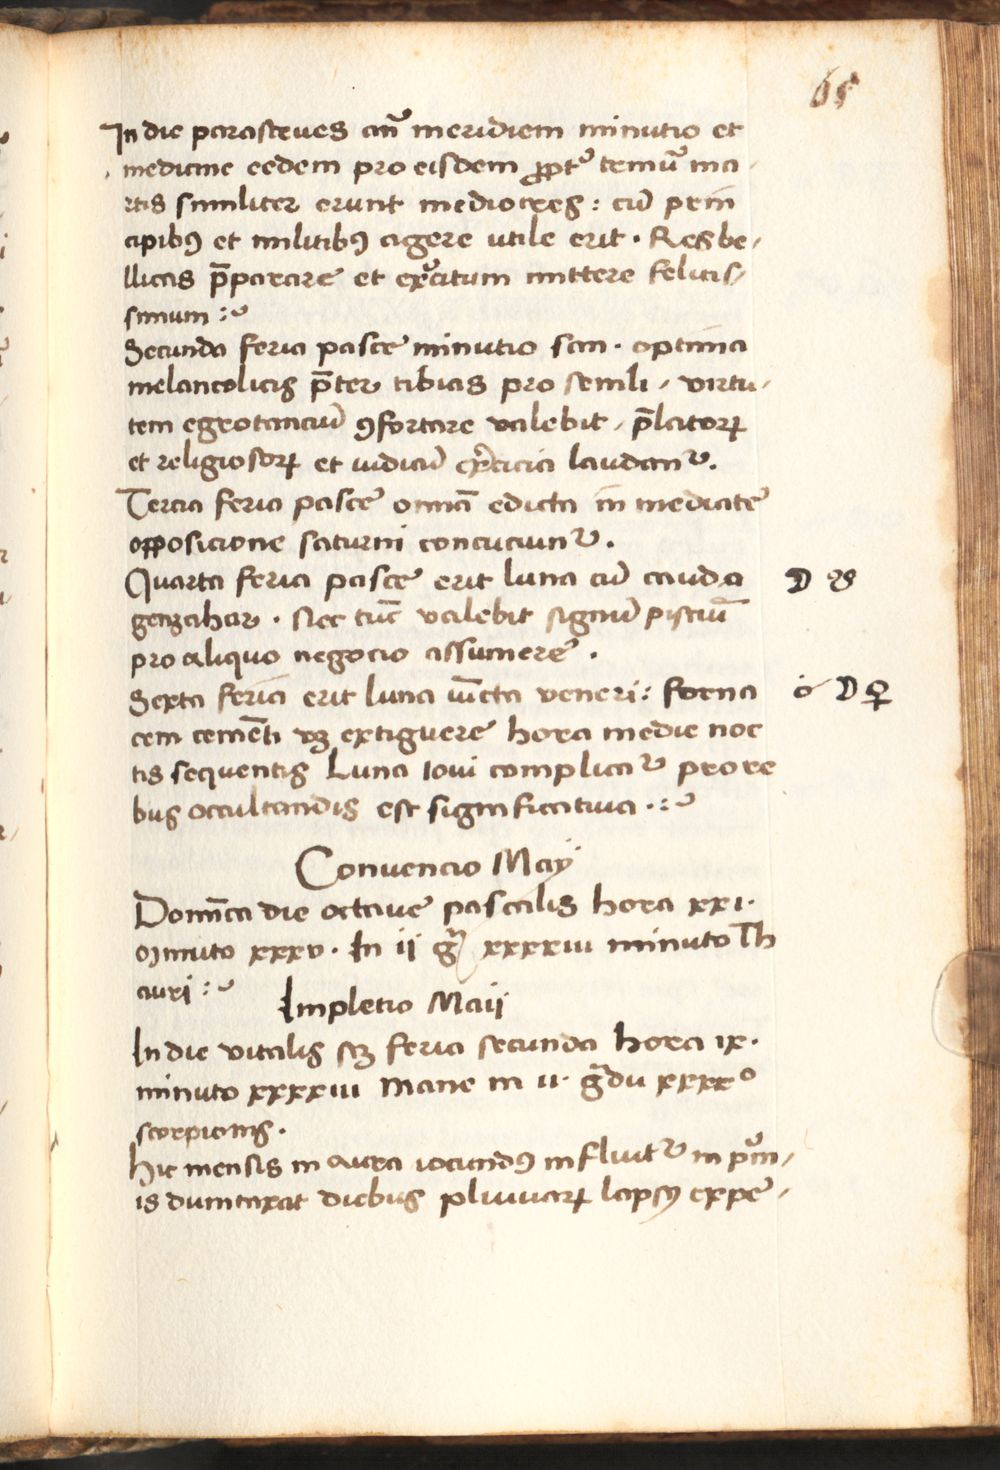 65
In die parasceues an̄ meridiem minutio et
medicine eedem pro eisdem ꝓpt᷒ temū ma-
rtis similiter erunt mediocres : cū prin
cipibꝰ et militibꝰ agere utile erit . Res be-
llicas p̄parare et exercitum mittere felicis-
simum :~
Secunda feria pasce minutio san . optima
melancolicis p̄ter tibias pro semli , virtu-
tem egrotanciū ꝯfortare valebit , p̄latoꝝ
et religiosoꝝ et iudiciū exercicia laudanᷣ .
Tercia feria pasce omnia edicta in mediate
opposicione saturni concuciunᷣ .
Quarta feria pasce erit luna cū cauda D ☋
genzahar . Nec tūc valebit signū pisciū
pro aliquo negocio assumere .
Sexta feria erit luna iūcta veneri : forna ☌ D ♀
cem cemēti vꝫ extiguere hora medie noc
tis sequentis Luna Ioui complicaᷣ pro re
bus occultandis est significatiua . :~
Convencio Maÿ
Domīca die octaue pascalis hora xxi .
Minuto xxxv . In ij gr̄ xxxxiii minuto Th
auri :~
Impletio Maij
In die vitalis scꝫ feria secunda hora ix .
minuto xxxxiii mane in ii . gͣdu xxxx°
scorpionis .
Hic mensis in aura iocundꝰ infliutᷣ in prim-
is dumtaxat diebus pluuiaꝝ lapsu expe-